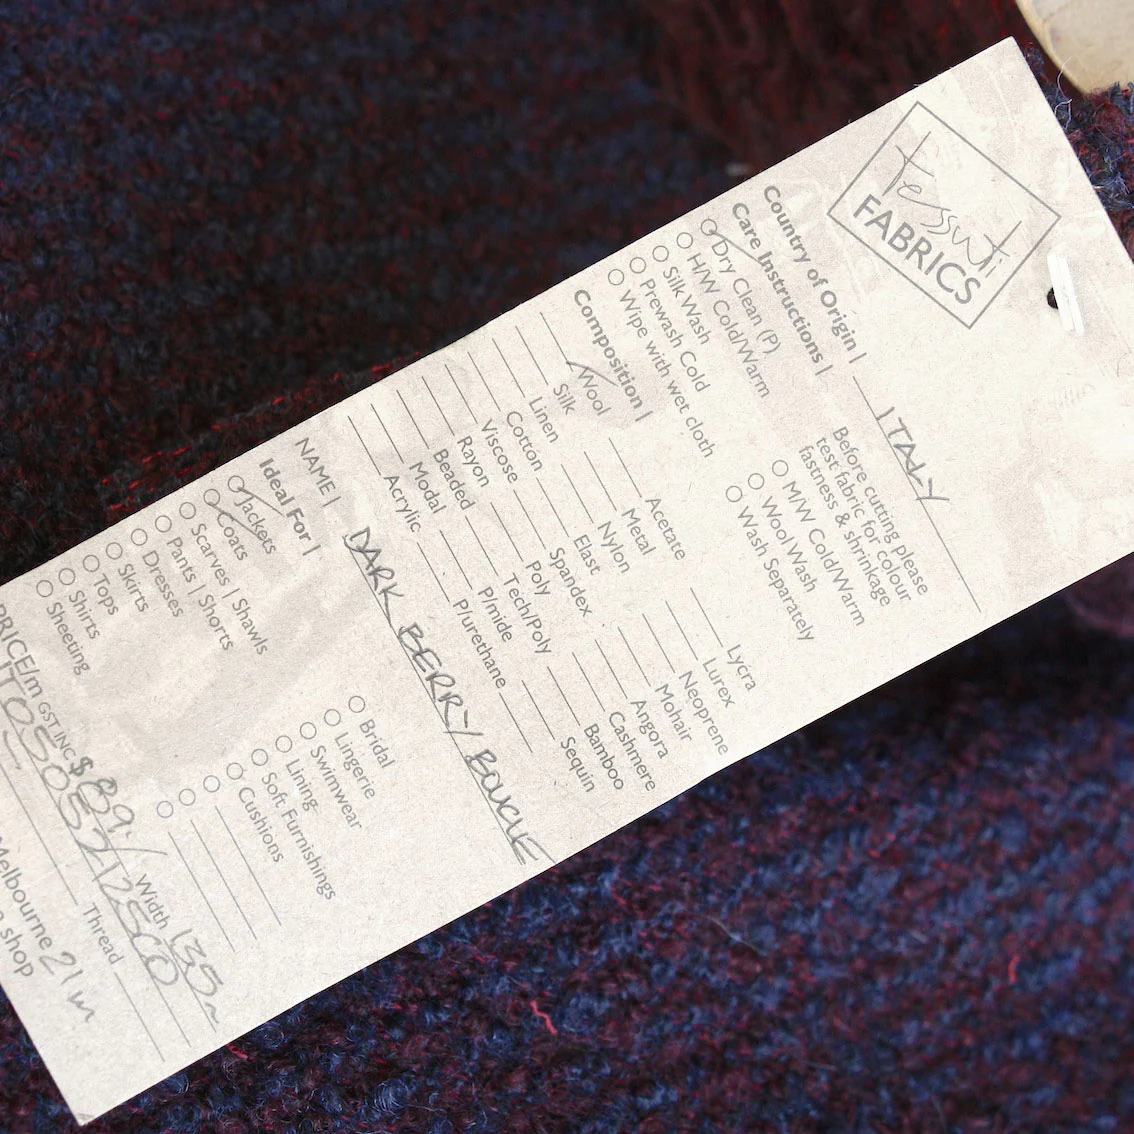 tessuti
FABRICS
Country of Origin | ITALY
Care Instructions |
Dry Clean (P)
H/W Cold/Warm
Silk Wash
Prewash Cold
Wipe with wet cloth
Before cutting please
test fabric for colour
fastness & shrinkage
M/W Cold/Warm
Wool Wash
Wash Separately
Composition |
Wool
Silk
Linen
Cotton
Viscose
Rayon
Beaded
Modal
Acrylic
Acetate
Metal
Nylon
Elast
Spandex
Poly
Tech/Poly
P/mide
P/urethane
Lycra
Lurex
Neoprene
Mohair
Angora
Cashmere
Bamboo
Sequin
NAME | DARK BERRY BOUCLE
Ideal For |
Jackets
Coats
Scarves | Shawls
Pants | Shorts
Dresses
Skirts
Tops
Shirts
Sheeting
Bridal
Lingerie
Swimwear
Lining
Soft Furnishings
Cushions
PRICE/m GST INC $ 89./ Width 135
Thread
Melbourne 21m
shop